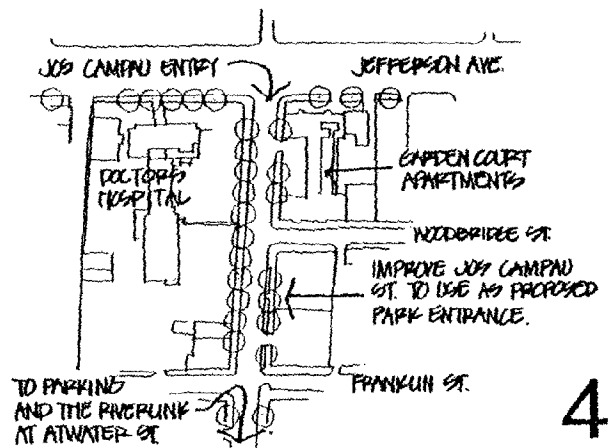 JOS CAMPAU ENTRY
JEFFERSON AVE.
DOCTORS
HOSPITAL
GARDEN COURT
APARTMENTS
WOODBRIDGE ST.
IMPROVE JOS CAMPAU
ST. TO USE AS PROPOSED
PARK ENTRANCE.
TO PARKING
AND THE RIVERLINK
AT ATWATER ST.
FRANKLIN ST.
4